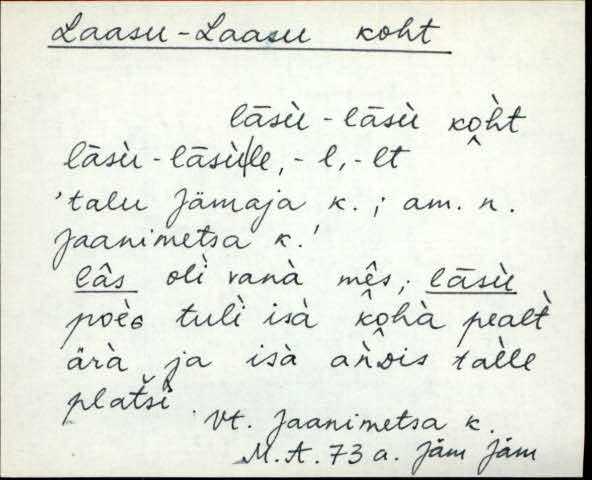 Laasu-Laasu koht
lāsù - lāsù ko̭ὴt
lāsù - lāsùlle, - l, - lt
'talu Jämaja k.; am. n.
Jaanimetsa k.'
lâs olì vanà mês, lāsù
poès tulì isà ko̭hà pealt̀
ärà ja isà aǹdis talle
platšì. Vt. Jaanimetsa k.
M.A. 73 a. Jäm Jäm